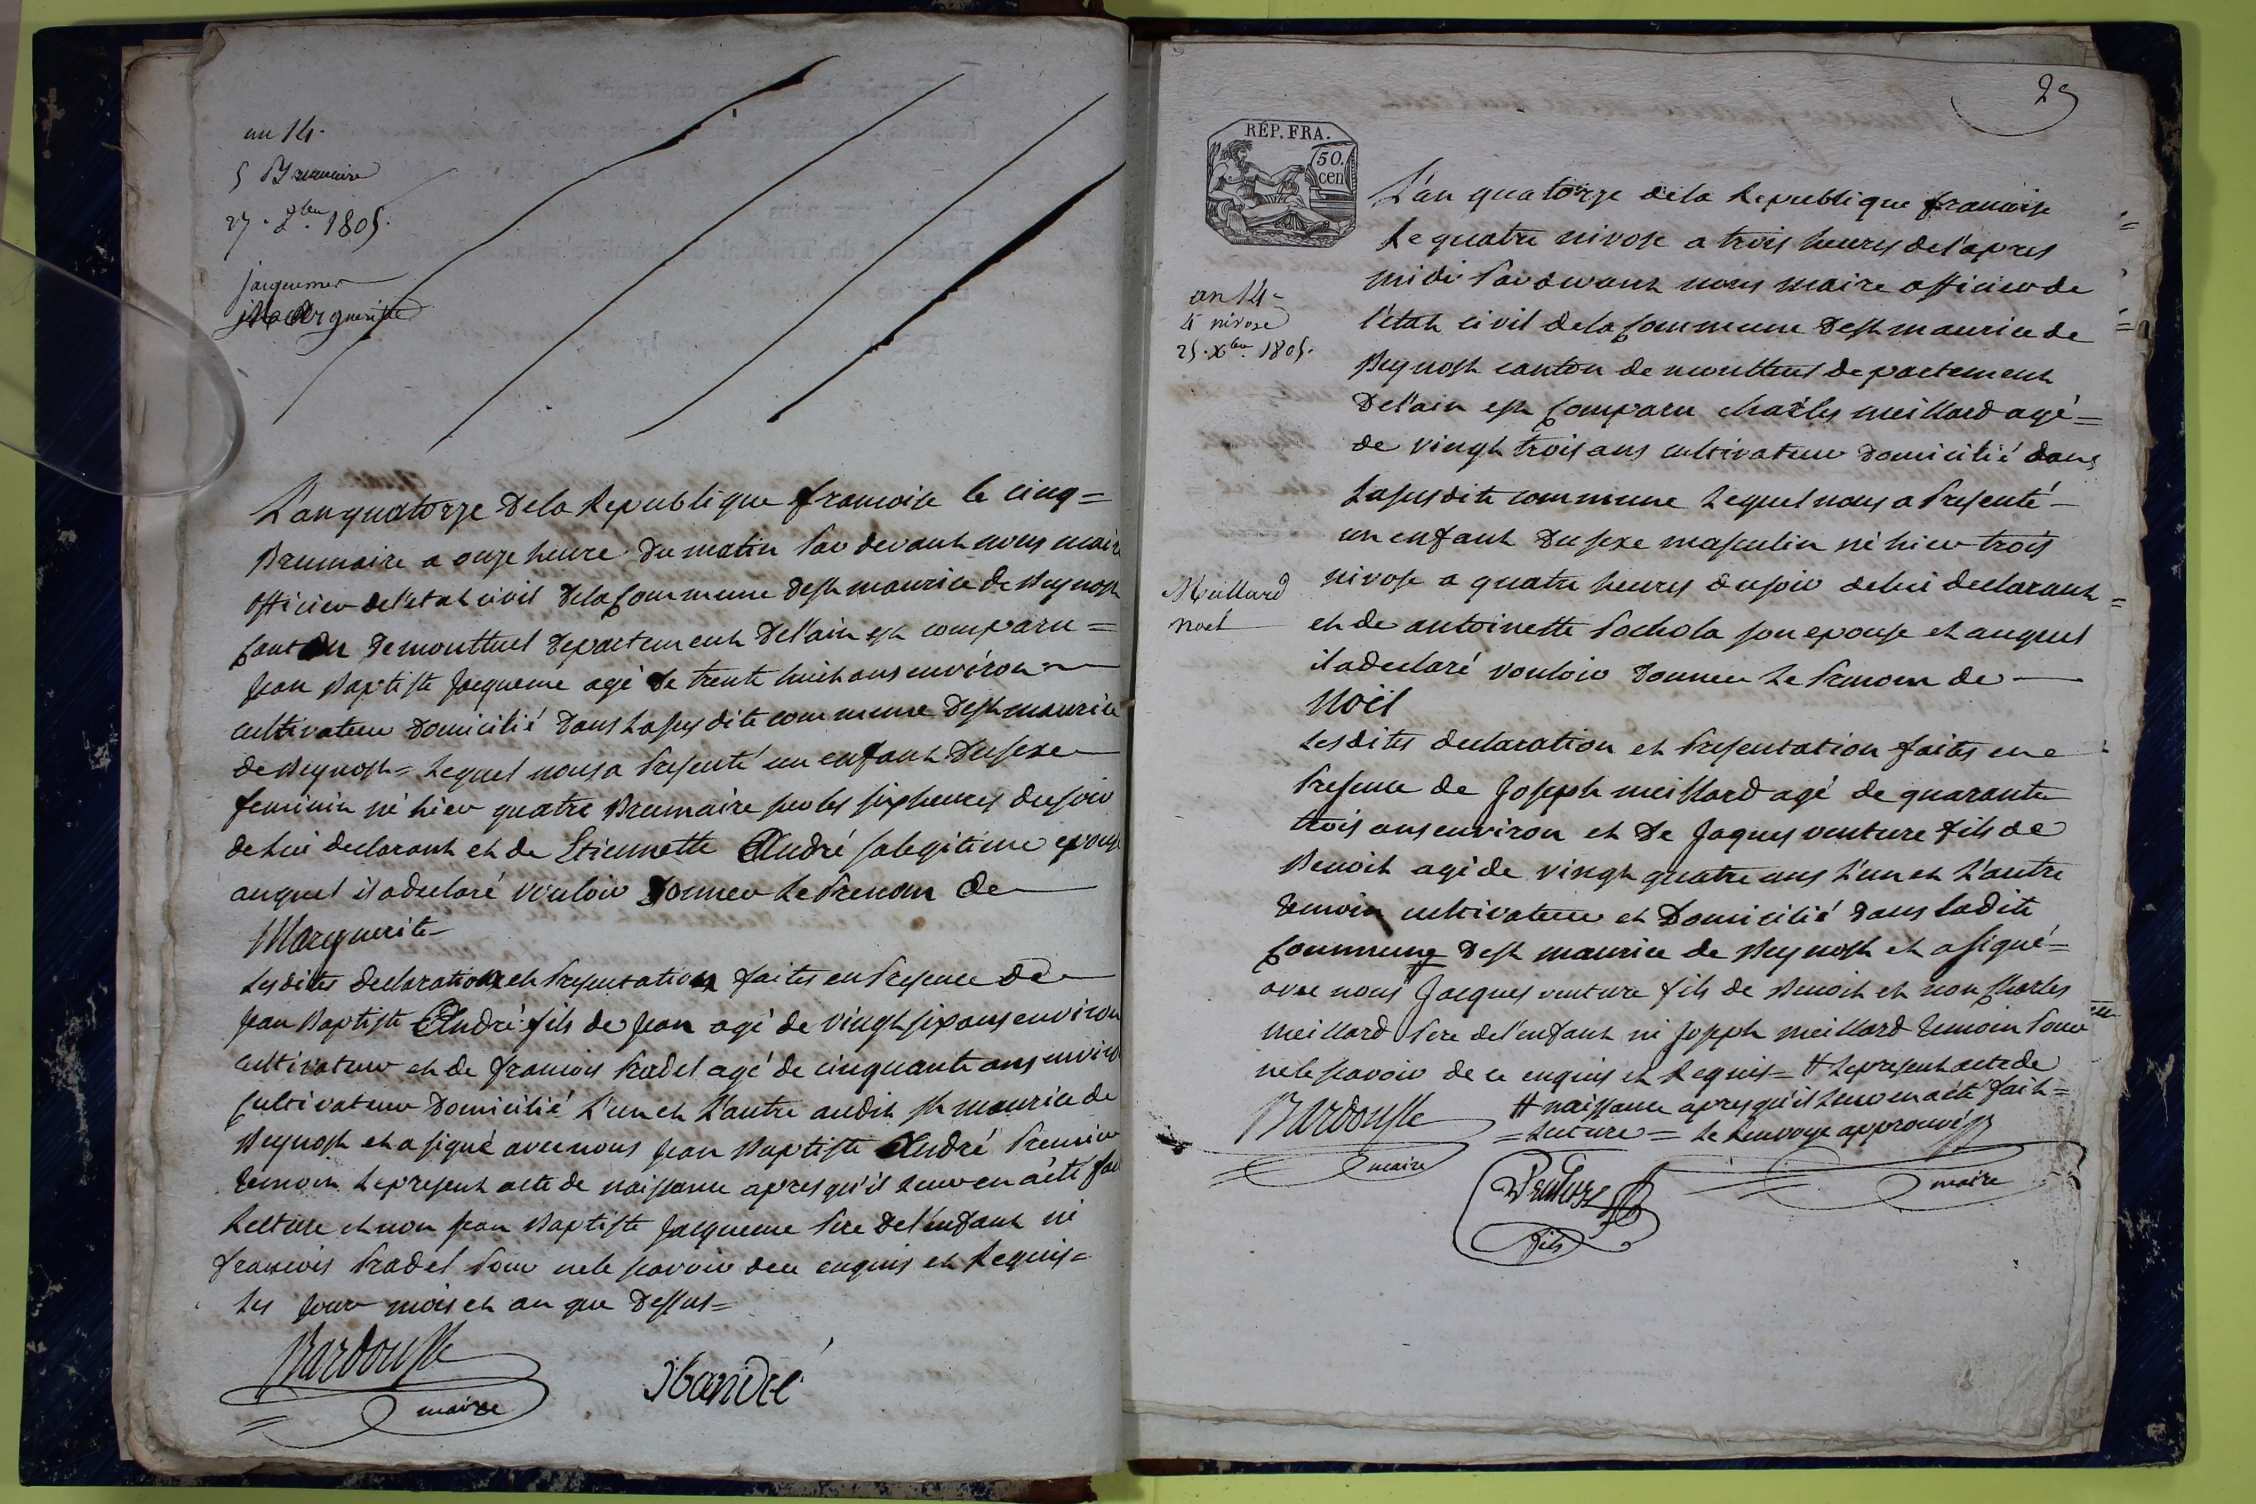 an 14.
5 Brumaire
27. 8bre 1805.
jacquemer
Marguerite
L'an quatorze dela Republique francoise le cinq =
Brumaire a onze heure du matin Par devant nous maire
officier de l'etat civil dela Commune de st maurice de Beynost
Canton de montluel departement de l'ain est comparu =
Jean Baptiste Jacqueme agé de trente huit ans environ
cultivateur Domicilié dans La susdite commune de st maurice
de Beynost = Lequel nous a Presenté un enfant du sexe
feminin né hier quatre Brumaire sur les six heures du soir
de Lui declarant et de Etiennette André sa legitime epouse
auquel il a declaré vouloir Donner Le Prenom de
Marguerite
Les dites declaration et Presentation faites en Presence de
Jean Baptiste André fils de Jean agé de vingt six ans environ
cultivateur et de francois Pradel agé de cinquante ans environ
Cultivateur Domicilié L'un et L'autre audit st maurice de
Beynost et a signé avec nous Jean Baptiste André Premier
temoin Le present acte de naissance apres qu'il Leur en a été fait
Lecture et non Jean Baptiste Jacqueme Pere de l'enfant ni
francois Pradel Pour ne le scavoir de ce enquis et Requis =
Les Jour mois et an que Dessus =
Bardousse
maire
Jb andré
29
RÉP. FRA.
50.
cen
an 14 -
4 nivose
25. Xbre. 1805.
L'an quatorze de la Republique francoise
Le quatre nivose a trois heures de l'apres
midi Par devant nous maire officier de
l'état civil de la Commune de st maurice de
Beynost canton de montluel departement
De l'ain est Comparu charles meillard agé =
de vingt trois ans cultivateur domicilié dans
La susdite commune Lequel nous a Presenté -
un enfant du sexe masculin né hier trois
nivose a quatre heures du soir de lui declarant =
Meillard
noel
et de antoinette Pochola son epouse et auquel
il a declaré vouloir donner Le Prenom de
Noël
Les dites declaration et Presentation faites en
Presence de Joseph meillard agé de quarante
trois ans environ et de Jaques venture fils de
Benoit agé de vingt quatre ans L'un et L'autre
temoin cultivateur et Domicilié dans ladite
Commune de st maurice de Beynost et a signé =
avec nous Jacques venture fils de Benoit et non Charles
meillard Pere de l'enfant ni Joseph meillard temoin Pour
ne le scavoir de ce enquis et Requis = # Le present acte de
# naissance apres qu'il Leur en a été fait =
= Lecture = Le Renvoye approuvé
Bardousse
maire
Venture
fils
maire